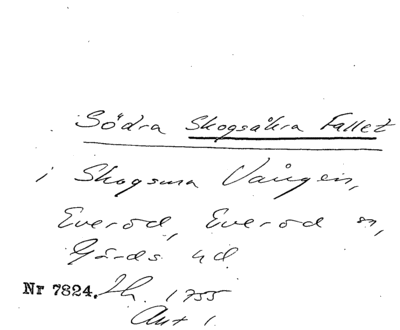 Södra Skogsåkra Fallet
i Skogsma Vången,
Everöd, Everöd sn,
Gärds hd
Nr 7824. Lh. 1755
Akt 1.